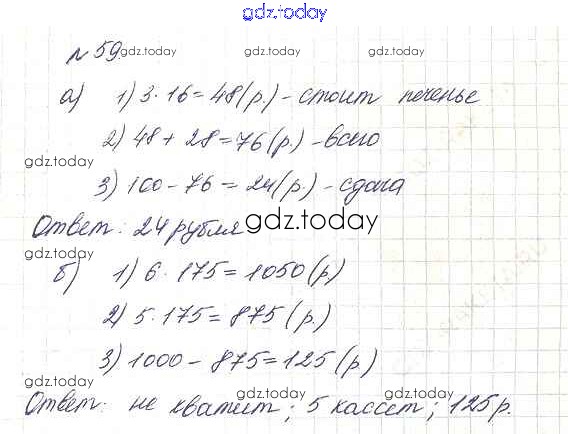 gdz.today
№59.
gdz.today gdz.today gdz.today
а) 1) 3·16=48(р.)-стоит печенье
2) 48+28=76(р.)-всего
gdz.today
3) 100-76=24(р.)-сдача
Ответ: 24 рубля
gdz.today
gdz.today
б) 1) 6·175=1050(р)
2) 5·175=875(р.)
gdz.today
3) 1000-875=125(р)
gdz.today gdz.today gdz.today
Ответ: не хватит; 5 кассет; 125р.
gdz.today gdz.today gdz.today